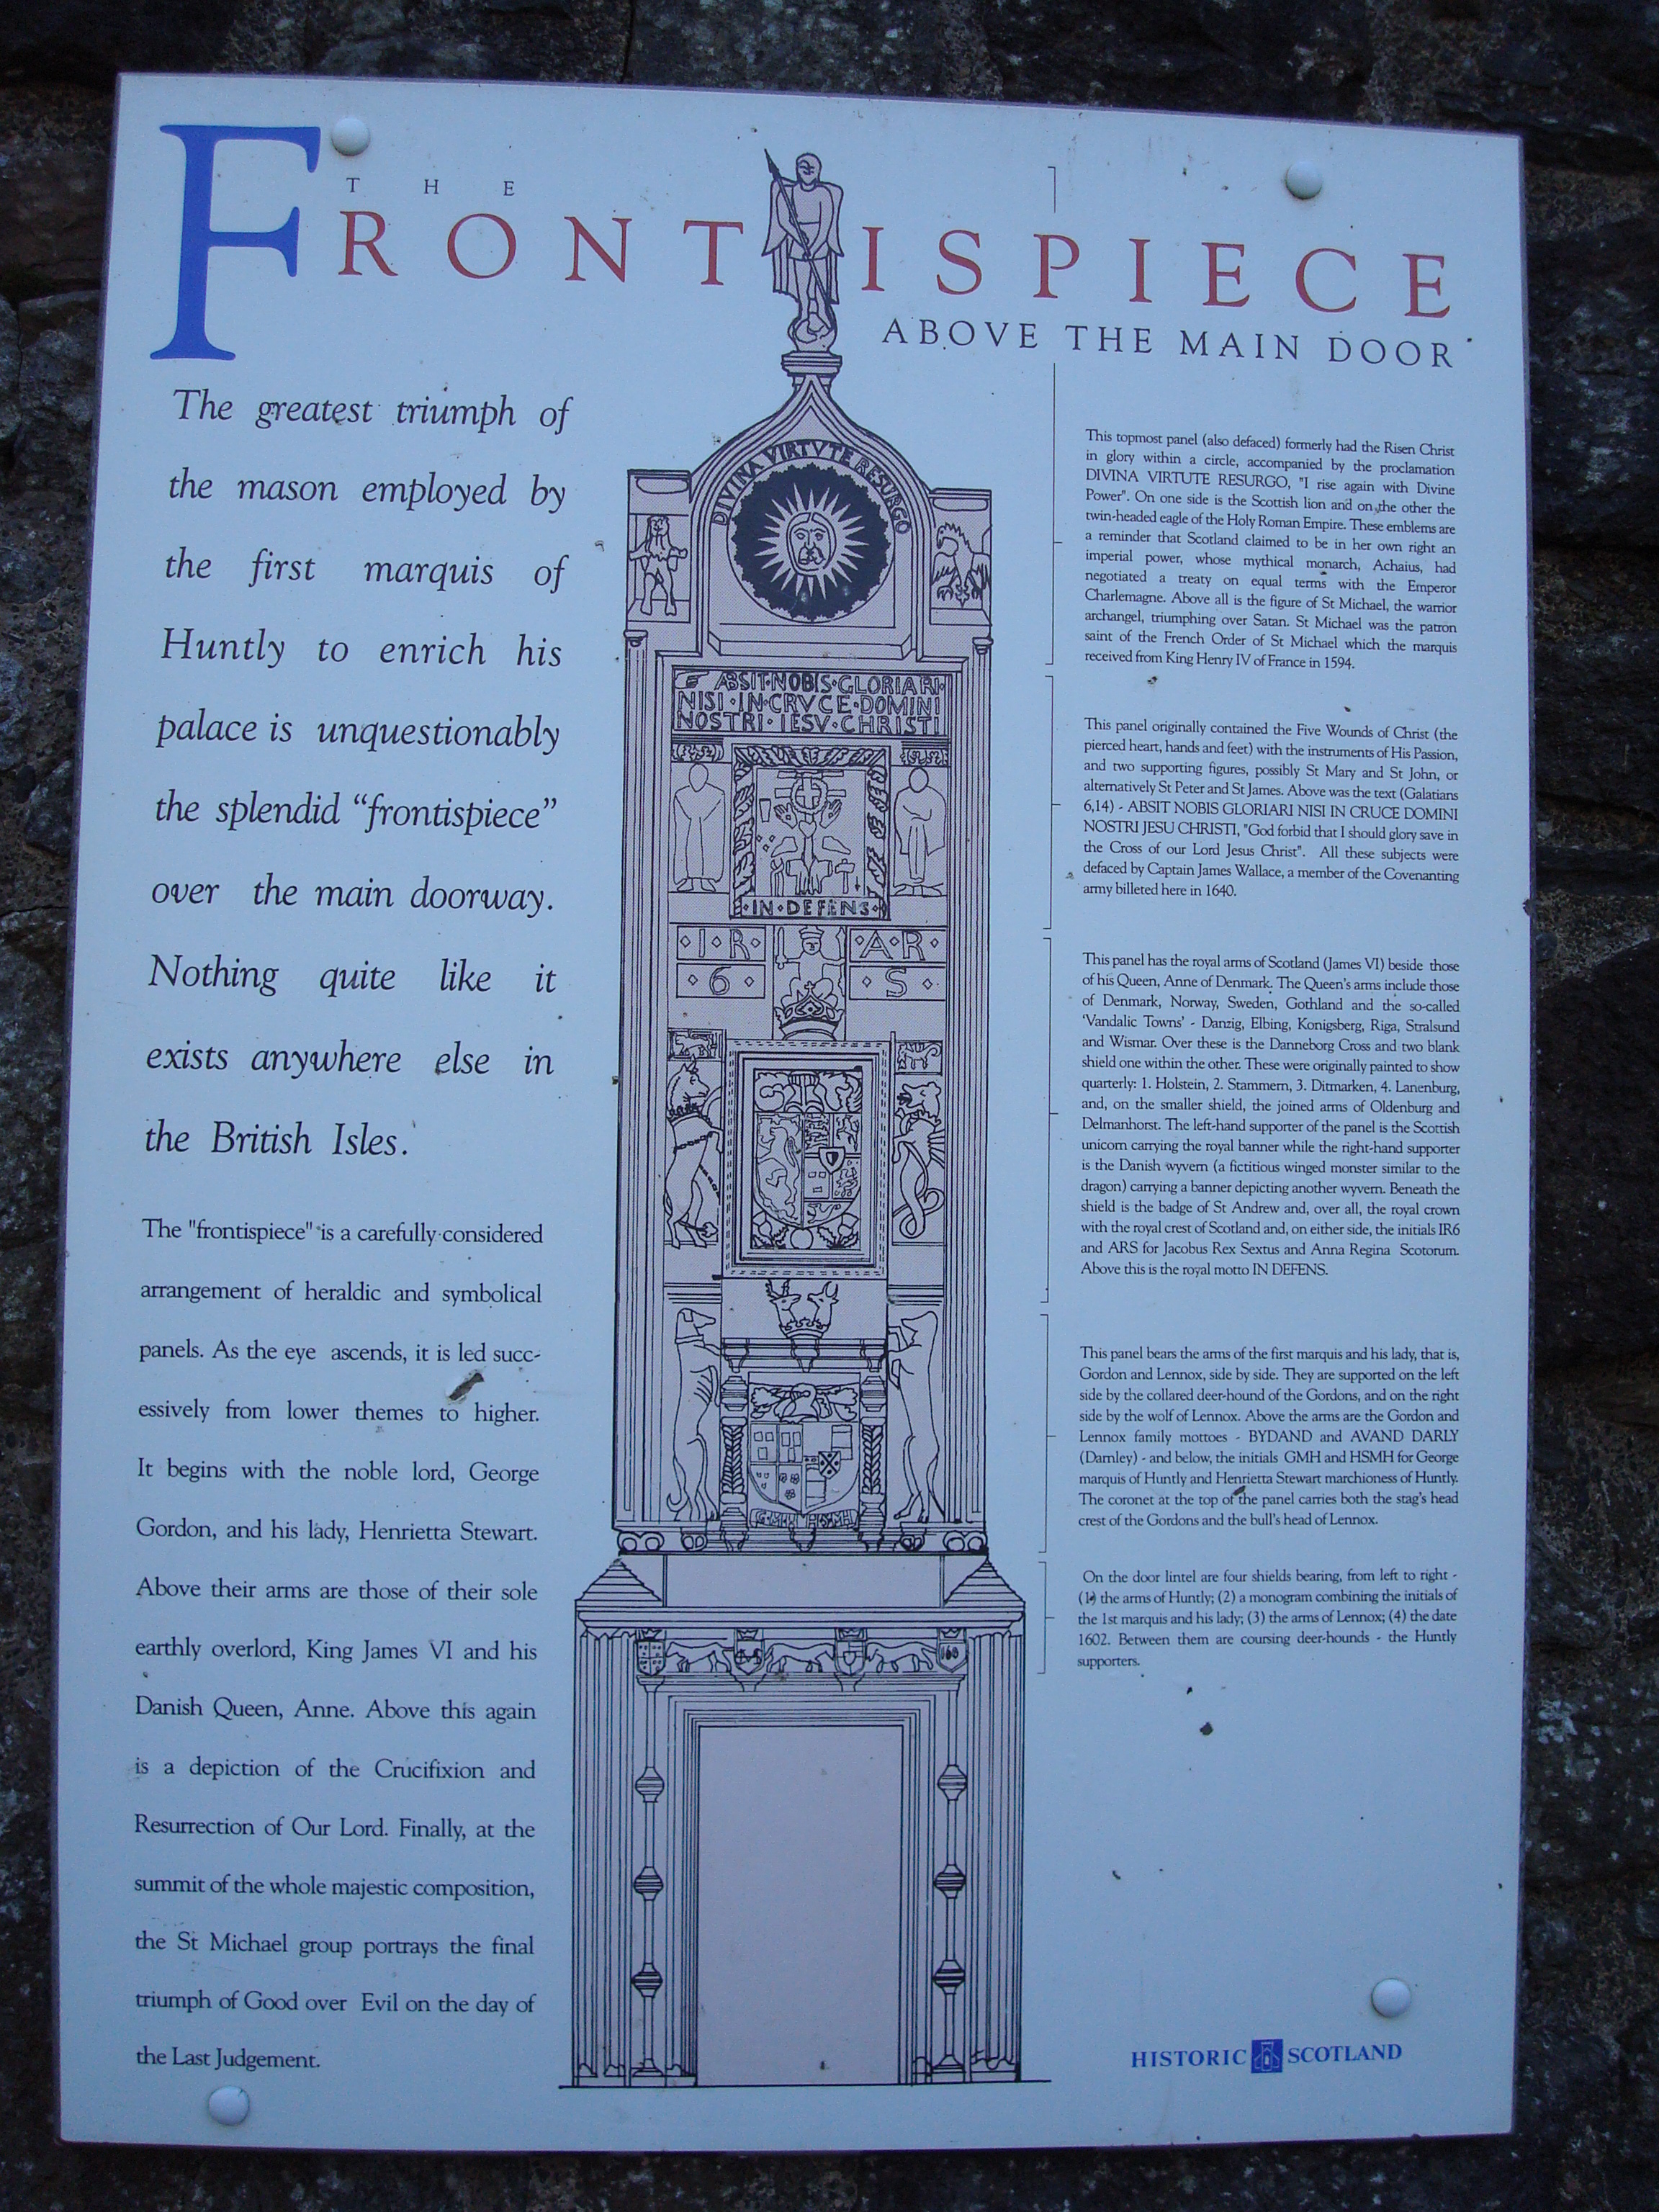 THE
FRONTISPIECE
ABOVE THE MAIN DOOR
The greatest triumph of
the mason employed by
the first marquis of
Huntly to enrich his
palace is unquestionably
the splendid “frontispiece”
over the main doorway.
Nothing quite like it
exists anywhere else in
the British Isles.
The "frontispiece" is a carefully considered
arrangement of heraldic and symbolical
panels. As the eye ascends, it is led succ-
essively from lower themes to higher.
It begins with the noble lord, George
Gordon, and his lady, Henrietta Stewart.
Above their arms are those of their sole
earthly overlord, King James VI and his
Danish Queen, Anne. Above this again
is a depiction of the Crucifixion and
Resurrection of Our Lord. Finally, at the
summit of the whole majestic composition,
the St Michael group portrays the final
triumph of Good over Evil on the day of
the Last Judgement.
DIVINA VIRTVTE RESURGO
ABSIT·NOBIS·GLORIARI·
NISI·IN·CRVCE·DOMINI
NOSTRI·IESV·CHRISTI
·IN·DEFENS·
·I·R· ·A·R·
·6· ·S·
G·M·H H·S·M·H
160
This topmost panel (also defaced) formerly had the Risen Christ
in glory within a circle, accompanied by the proclamation
DIVINA VIRTUTE RESURGO, "I rise again with Divine
Power". On one side is the Scottish lion and on the other the
twin-headed eagle of the Holy Roman Empire. These emblems are
a reminder that Scotland claimed to be in her own right an
imperial power, whose mythical monarch, Achaius, had
negotiated a treaty on equal terms with the Emperor
Charlemagne. Above all is the figure of St Michael, the warrior
archangel, triumphing over Satan. St Michael was the patron
saint of the French Order of St Michael which the marquis
received from King Henry IV of France in 1594.
This panel originally contained the Five Wounds of Christ (the
pierced heart, hands and feet) with the instruments of His Passion,
and two supporting figures, possibly St Mary and St John, or
alternatively St Peter and St James. Above was the text (Galatians
6,14) - ABSIT NOBIS GLORIARI NISI IN CRUCE DOMINI
NOSTRI JESU CHRISTI, "God forbid that I should glory save in
the Cross of our Lord Jesus Christ". All these subjects were
defaced by Captain James Wallace, a member of the Covenanting
army billeted here in 1640.
This panel has the royal arms of Scotland (James VI) beside those
of his Queen, Anne of Denmark. The Queen's arms include those
of Denmark, Norway, Sweden, Gothland and the so-called
‘Vandalic Towns’ - Danzig, Elbing, Konigsberg, Riga, Stralsund
and Wismar. Over these is the Danneborg Cross and two blank
shield one within the other. These were originally painted to show
quarterly: 1. Holstein, 2. Stammern, 3. Ditmarken, 4. Lanenburg,
and, on the smaller shield, the joined arms of Oldenburg and
Delmanhorst. The left-hand supporter of the panel is the Scottish
unicorn carrying the royal banner while the right-hand supporter
is the Danish wyvern (a fictitious winged monster similar to the
dragon) carrying a banner depicting another wyvern. Beneath the
shield is the badge of St Andrew and, over all, the royal crown
with the royal crest of Scotland and, on either side, the initials IR6
and ARS for Jacobus Rex Sextus and Anna Regina Scotorum.
Above this is the royal motto IN DEFENS.
This panel bears the arms of the first marquis and his lady, that is,
Gordon and Lennox, side by side. They are supported on the left
side by the collared deer-hound of the Gordons, and on the right
side by the wolf of Lennox. Above the arms are the Gordon and
Lennox family mottoes - BYDAND and AVAND DARLY
(Darnley) - and below, the initials GMH and HSMH for George
marquis of Huntly and Henrietta Stewart marchioness of Huntly.
The coronet at the top of the panel carries both the stag's head
crest of the Gordons and the bull's head of Lennox.
On the door lintel are four shields bearing, from left to right -
(1) the arms of Huntly; (2) a monogram combining the initials of
the 1st marquis and his lady; (3) the arms of Lennox; (4) the date
1602. Between them are coursing deer-hounds - the Huntly
supporters.
HISTORIC SCOTLAND